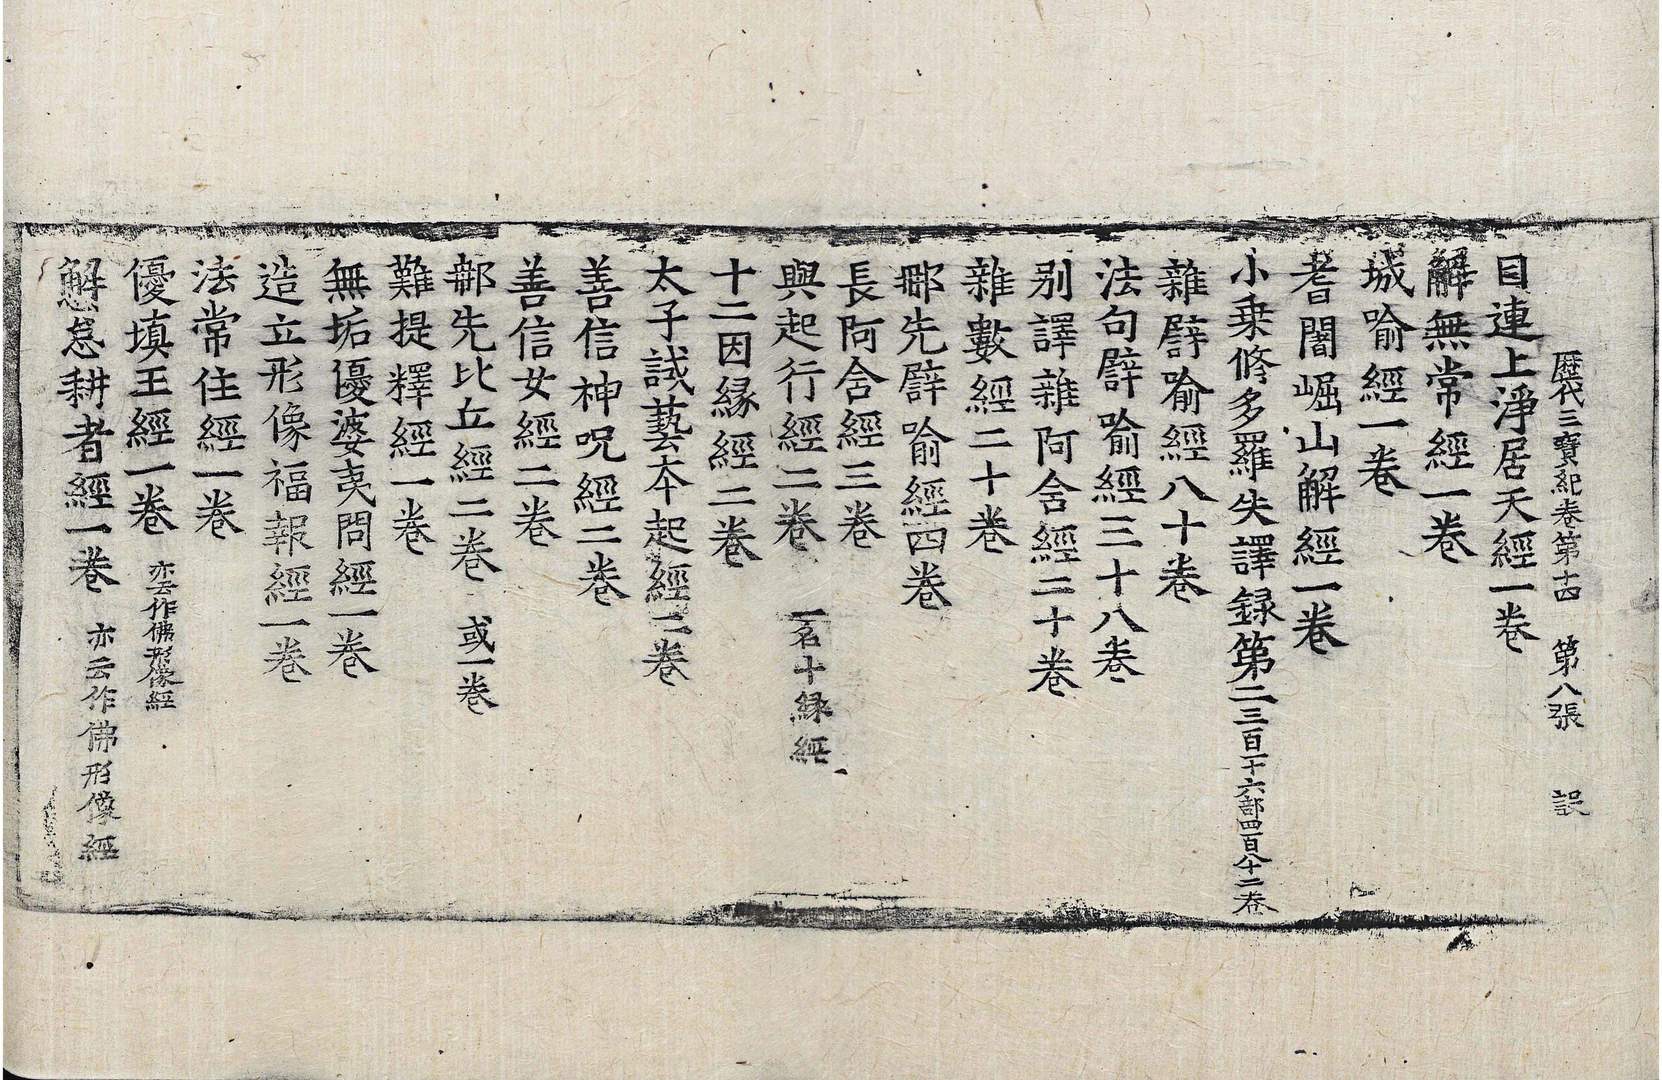 歷代三寶紀卷第十四　第八張　誤
目連上淨居天經一卷
解無常經一卷
城喻經一卷
耆闍崛山解經一卷
小乗修多羅失譯録第二三百一十六部四百八十二卷
雜譬喻經八十卷
法句譬喻經三十八卷
別譯雜阿含經二十卷
雜數經二十卷
那先譬喻經四卷
長阿含經三卷
興起行經二卷　一名十緣經
十二因緣經二卷
太子試藝本起經二卷
善信神呪經二卷
善信女經二卷
那先比丘經二卷　或一卷
難提釋經一卷
無垢優婆夷問經一卷
造立形像福報經一卷
法常住經一卷
優填王經一卷　亦云作佛形像經
懈怠耕者經一卷　亦云作佛形像經